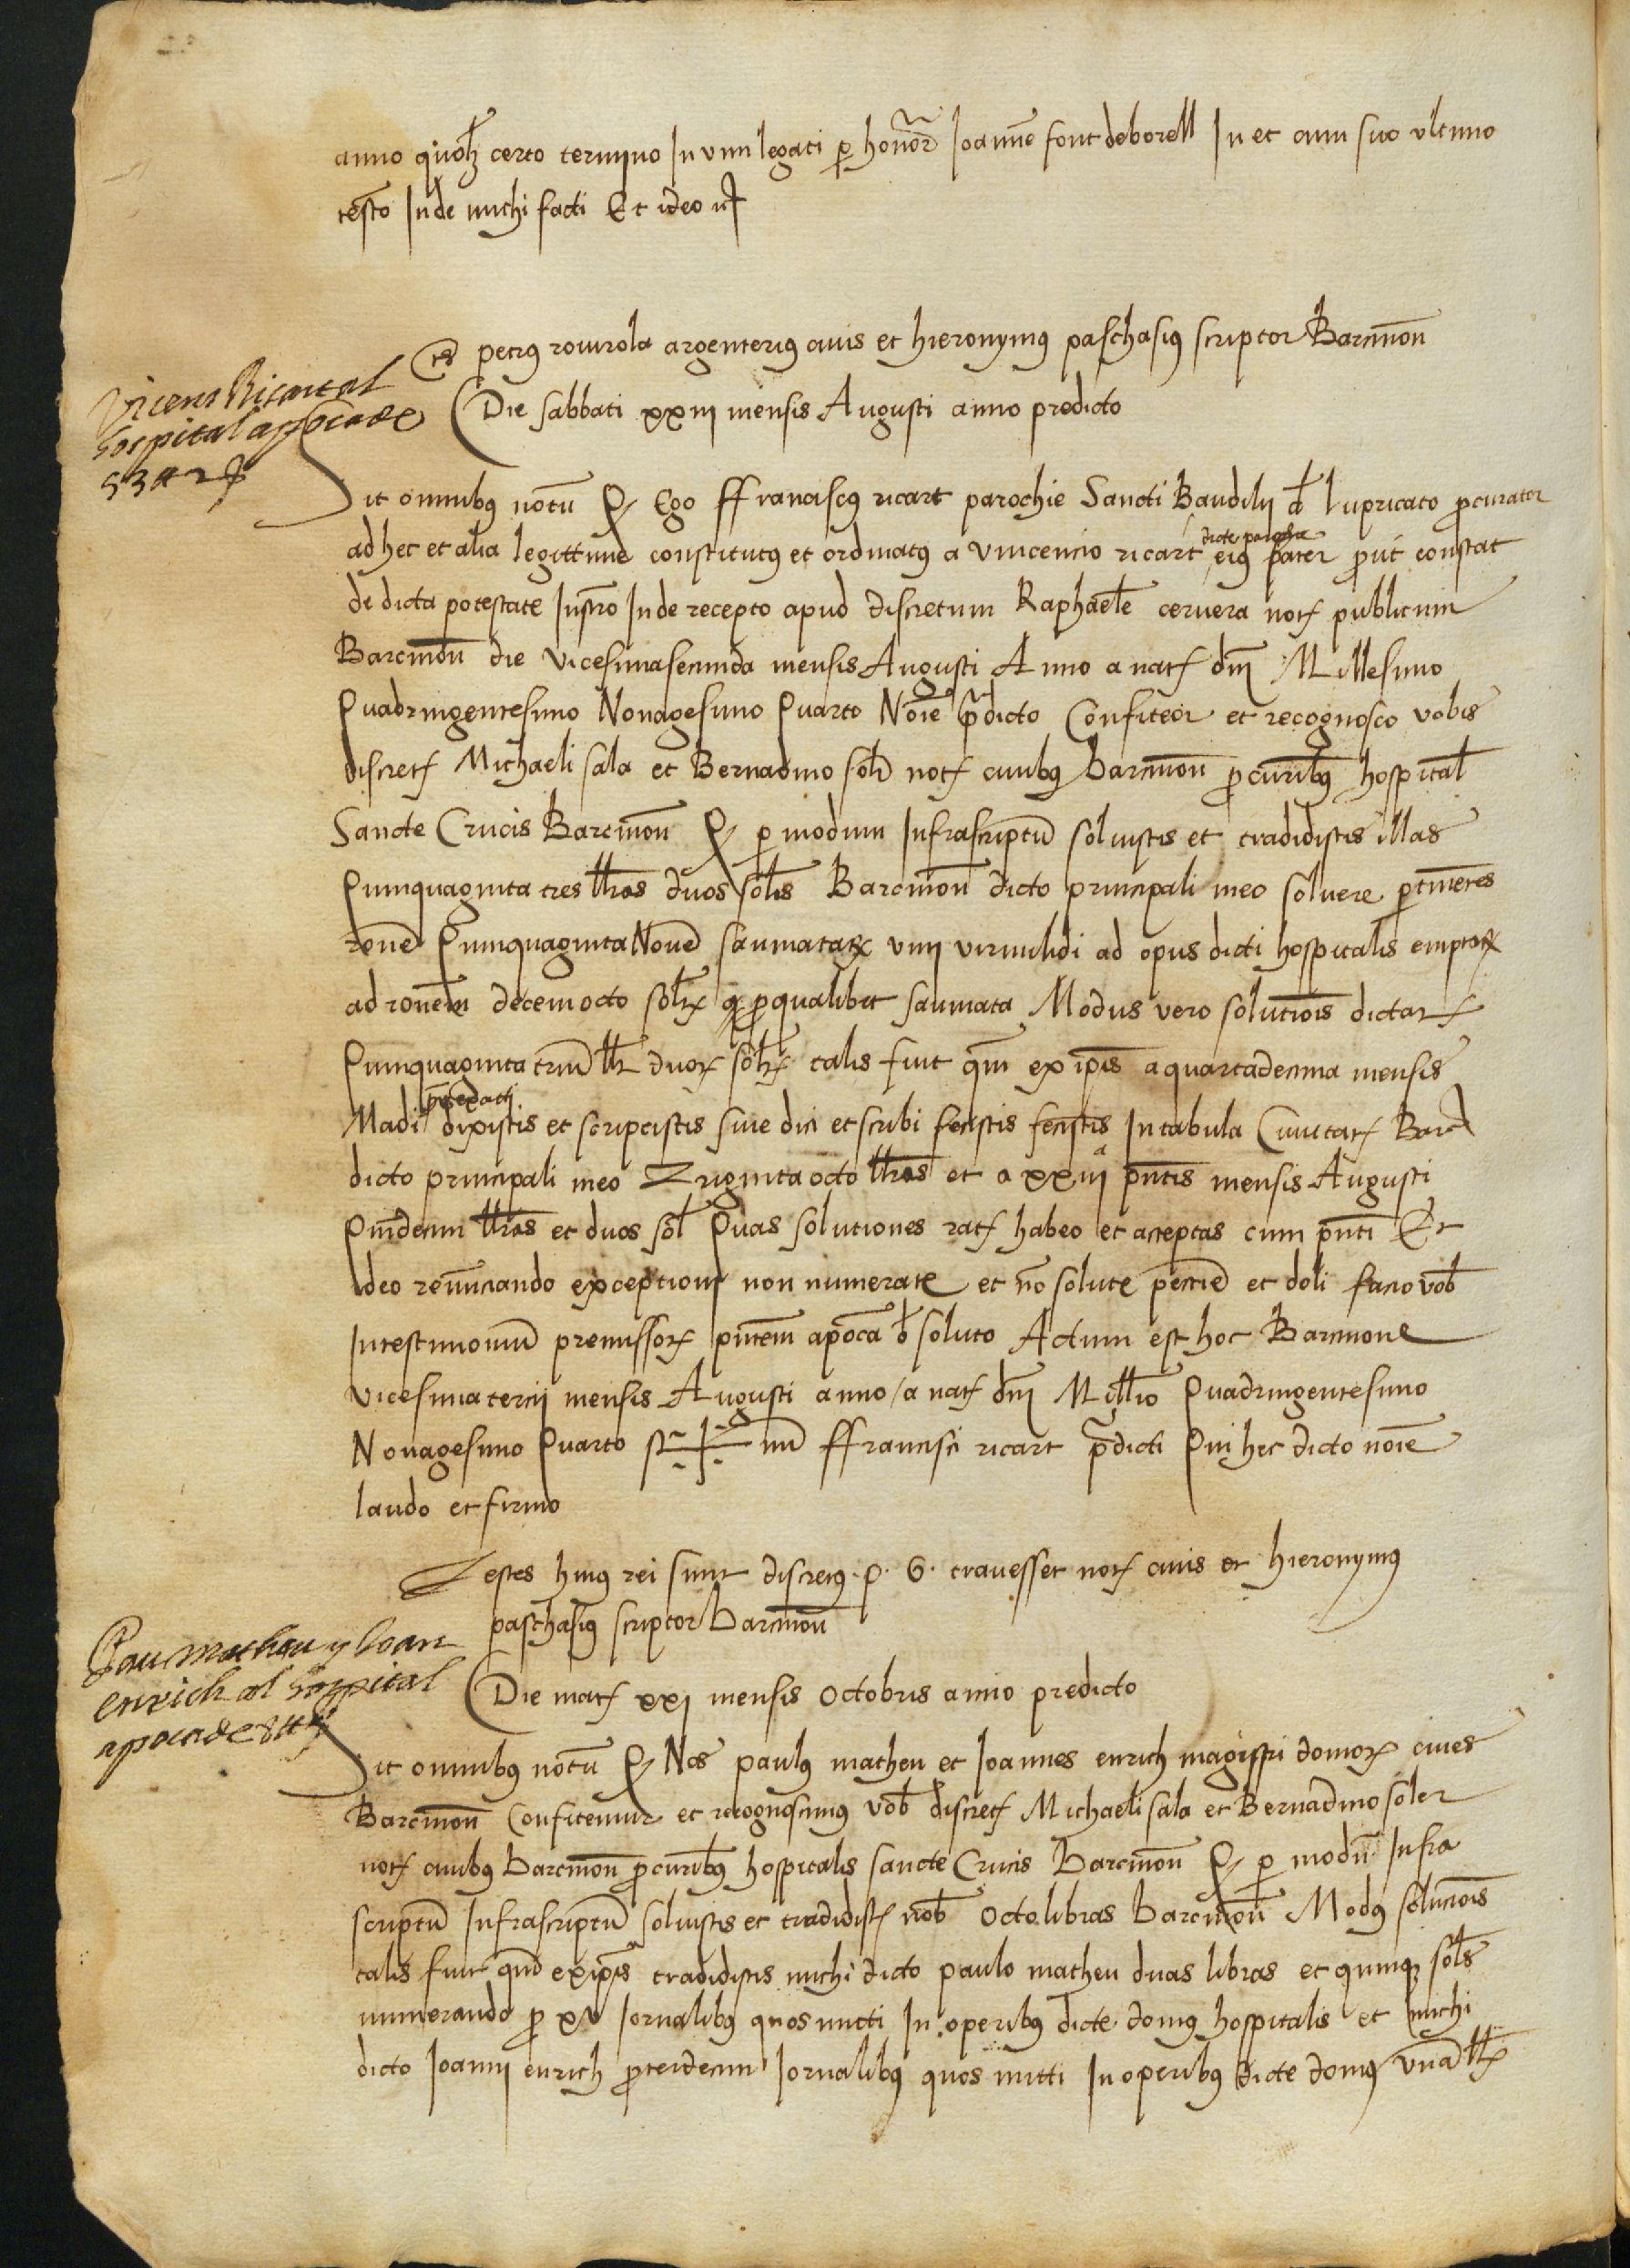 anno quolz certo termino In vim legati p honor Joanne font deborell In et cum suo ultimo
testo Inde michi facti Et ideo
petrus rovirola argenterius civis et hieronymus paschasius scriptor Barcinon
Vicens Ricart al
hospital apoca de
53 ₶ 2 ß
Die sabbati xxiii mensis Augusti anno predicto
Sit omnibus notu Q Ego ffranciscus ricart parochie Sancti Baudilii d lupricato pcurator
ad hec et alia legittime constitutus et ordinatus a vincencio ricart dicte parochie eius pater put constat
de dicta potestate Instro Inde recepto apud discretum Raphaele cervera not publicum
Barcinon die vicesimasecunda mensis Augusti Anno a nat dni Millesimo
Quadringentesimo Nonagesimo Quarto Noie pdicto Confiteor et recognosco vobis
discret Michaeli sala et Bernadino soler not civibus barcinon pcuribus hospital
Sancte Crucis Barcinon Q p modum Infrascriptu solvistis et tradidistis illas
Quinquaginta tres lliras duos solis Barcinon dicto principali meo solvere ptinetes
rone Quinquaginta Nove saumatar vini virmilidi ad opus dicti hospitalis emptor
ad ronem decemocto sol p qualibet saumata Modus vero solutiois dictar
Quinquaginta triu ll duor sol talis fuit qm ex ipis a quartadecima mensis
Madii dixistis et scripcistis sive dici et scribi fecistis fecistis In tabula Civitat Barc
dicto principali meo Triginta octo lliras et a xxiii pntis mensis Augusti
Quidecim lliras et duos sol Quas solutiones rat habeo et acceptas cum pnti Et
Ideo renunciando exceptioni non numerate et no solute pecunie et doli facio vob
In testimoniu premissor pntem apoca d soluto Actum est hoc Barcinone
vicesima tercii mensis Augusti anno a nat dni Millio Quadringentesimo
Nonagesimo Quarto S num ffrancisci ricart pdicti Qui hec dicto noie
laudo et firmo
Testes huius rei sunt discretus p. G. travesset not civis et hieronymus
paschasius scriptor barcinon
Pau matheu y Joan
enrich al hospital
apoca de 8 ₶
Die mart xxi mensis octobris anno predicto
Sit omnibus notu Q Nos paulus matheu et Joannes enrich magistri domor cives
Barcinon Confitemur et recognoscimus vob discret Michaeli sala et Bernadino soler
not civibus barcinon pcuribus hospitalis sancte Crucis Barcinon Q p modu Infra
scriptu Infrascriptu solvistis et tradidist nob octo libras barcinon Modus soluciois
talis fuit qm ex ipis tradidistis michi dicto paulo matheu duas libras et quinque sols
numerando p xv Jornalibus quos mitti In operibus dicte domus hospitalis et michi
dicto Joanni enrich p terdecim Jornalibus quos mitti In operibus dicte domus una ll